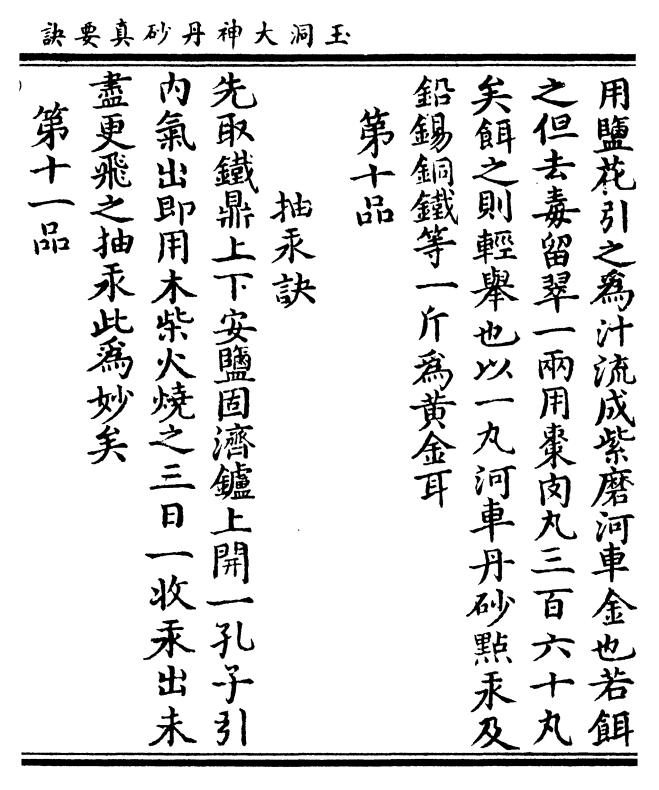 玉洞大神丹砂真要訣
用鹽花引之爲汁流成紫磨河車金也若餌
之但去毒留翠一兩用棗肉丸三百六十丸
矣餌之則輕舉也以一丸河車丹砂點汞及
鉛錫銅鐵等一斤爲黃金耳
第十品
抽汞訣
先取鐵鼎上下安鹽固濟鑪上開一孔子引
內氣出即用木柴火燒之三日一收汞出未
盡更飛之抽汞此爲妙矣
第十一品